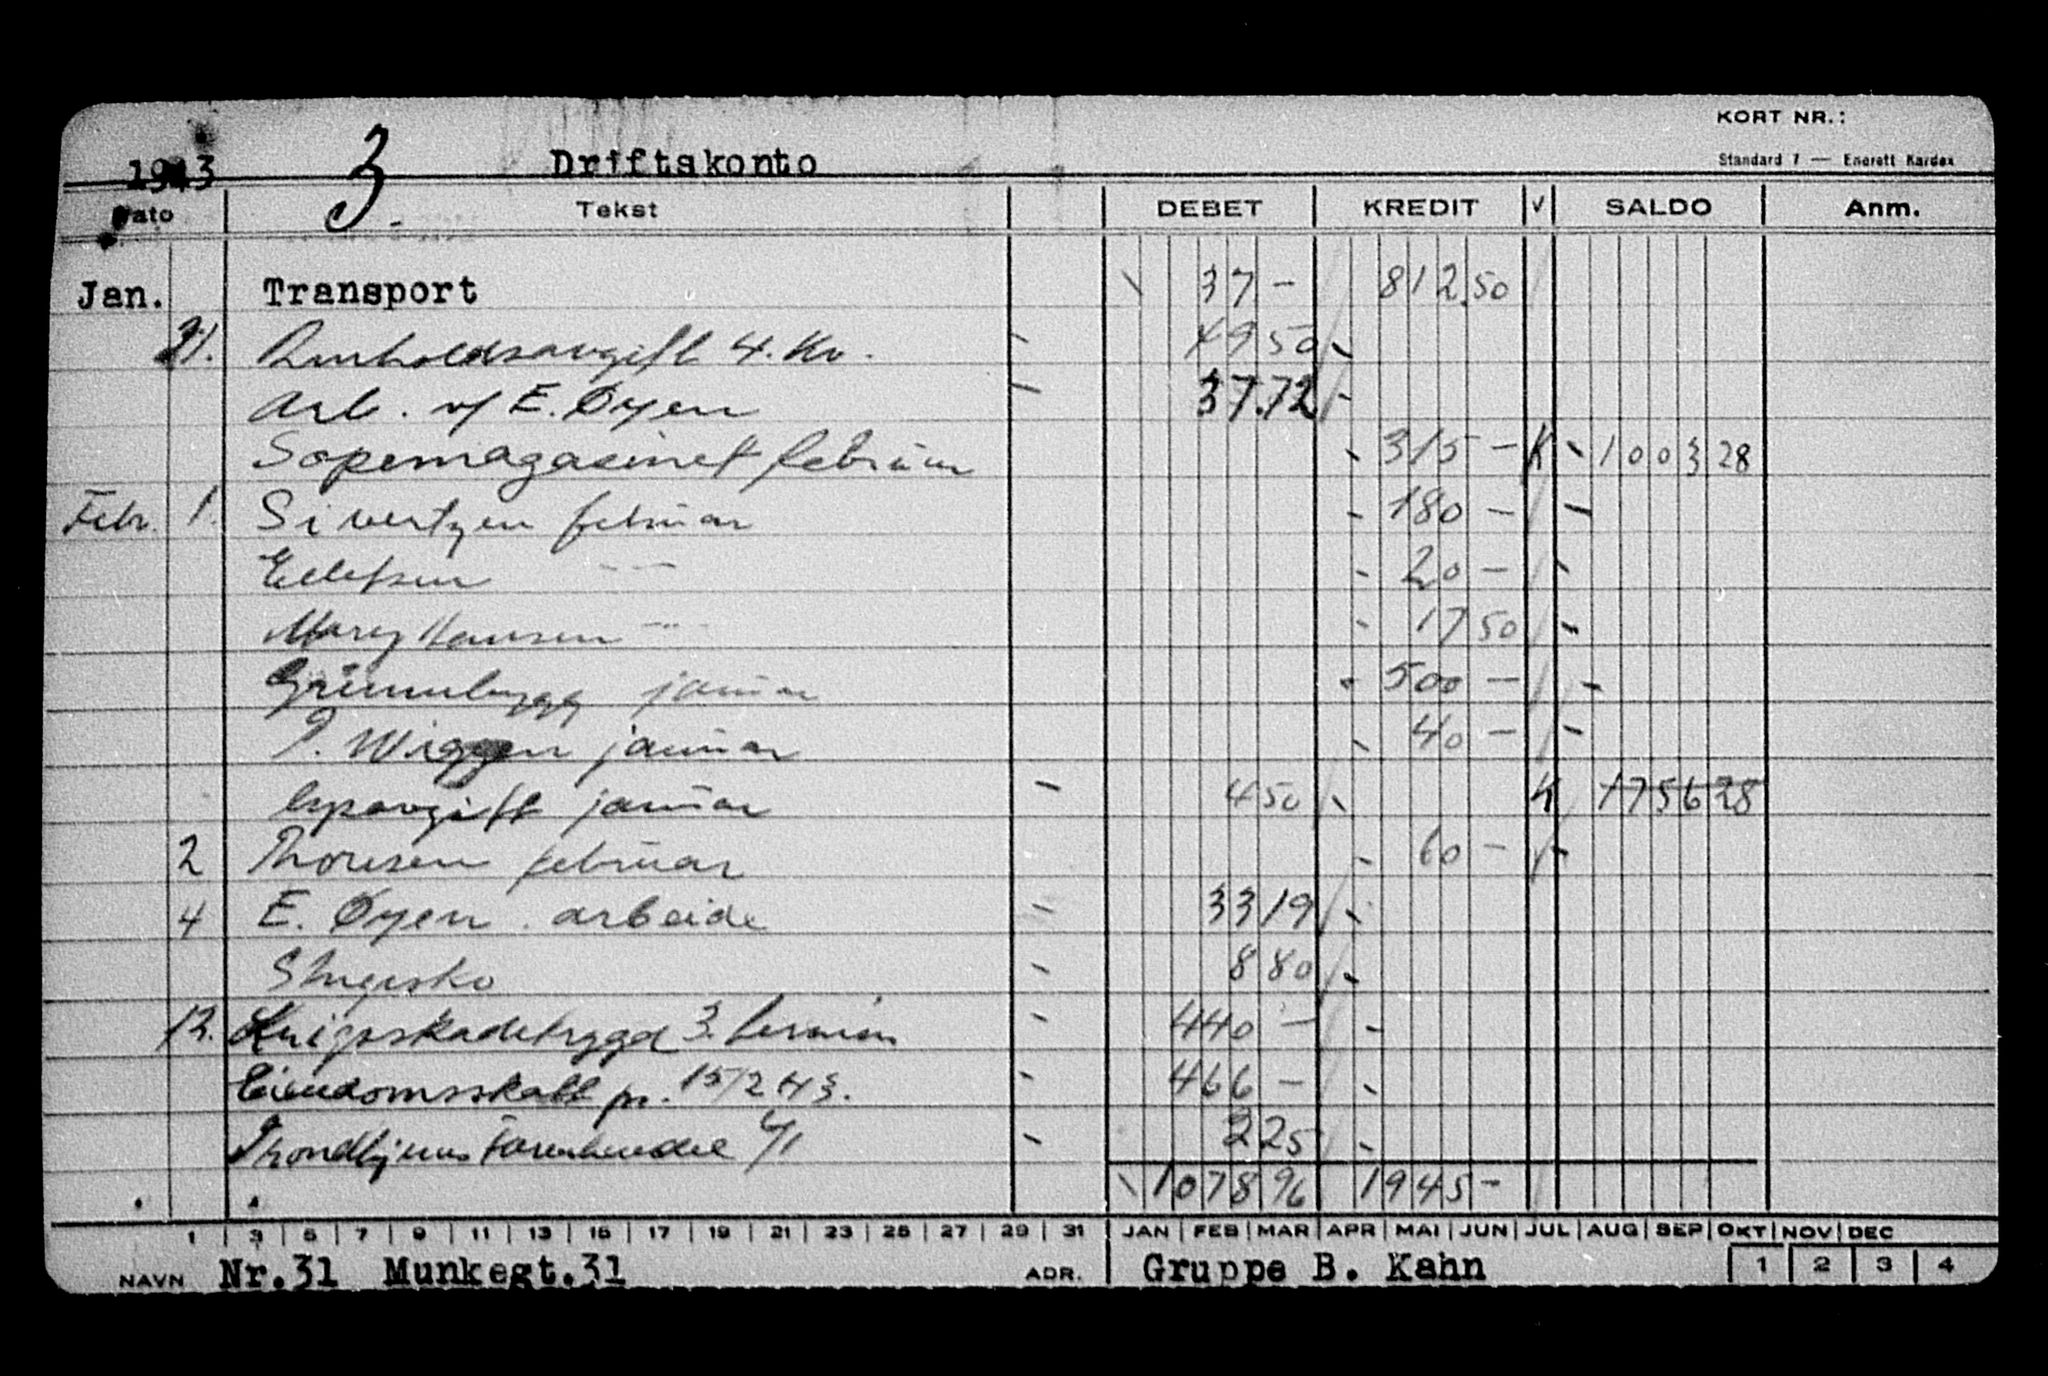 KORT NR.:
Standard 7 — Enerett Kardex
1943 3. Driftskonto
Dato Tekst DEBET KREDIT V SALDO Anm.
Jan. Transport 37 - 812.50
31. Renholdsavgift 4. Kv. 49 50
Arb. v/ E. Øyen 37.72
Sopemagasinet februar 315 - K 1003 28
Febr. 1. Sivertzen februar 180 -
Ellefsen — — 20 -
Mary Hansen — — 17 50
Grünnbygg januar 500 -
P. Wiggen januar januar 40 -
avgift januar 4 50 K 1756 28
2 Thoresen februar 60 -
4 E. Øyen. arbeide 33 19
8 80
12. Krigsskadetrygd 3. termin 440 -
Eiendomsskatt pr. 15/2 43. 466 -
Trondhjems 2 25
1078 96 1945 -
1 3 5 7 9 11 13 15 17 19 21 23 25 27 29 31 JAN FEB MAR APR MAI JUN JUL AUG SEP OKT NOV DEC
NAVN Nr.31 Munkegt.31 ADR. Gruppe B. Kahn 1 2 3 4